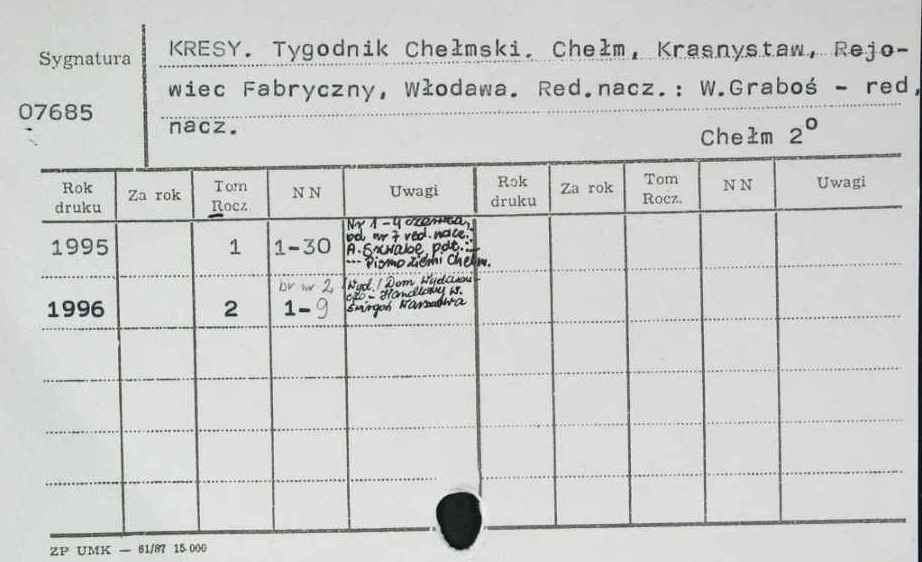 Sygnatura
07685
KRESY. Tygodnik Chełmski. Chełm, Krasnystaw, Rejo-
wiec Fabryczny, Włodawa. Red.nacz.: W.Graboś - red,
nacz.
Chełm 2°
Rok druku Za rok Tom Rocz. N N Uwagi Rok druku Za rok Tom Rocz. N N Uwagi
1995 1 1-30 Nr 1-4 czerwca,
od nr 7 red. nacz.:
A. Szwabe podt.:
... Pismo Ziemi Chełm.
br nr 2 Wyd.: Dom Wydawni-
1996 2 1-9 czo-Handlowy W.
Warszawa
ZP UMK — 61/87 15 000